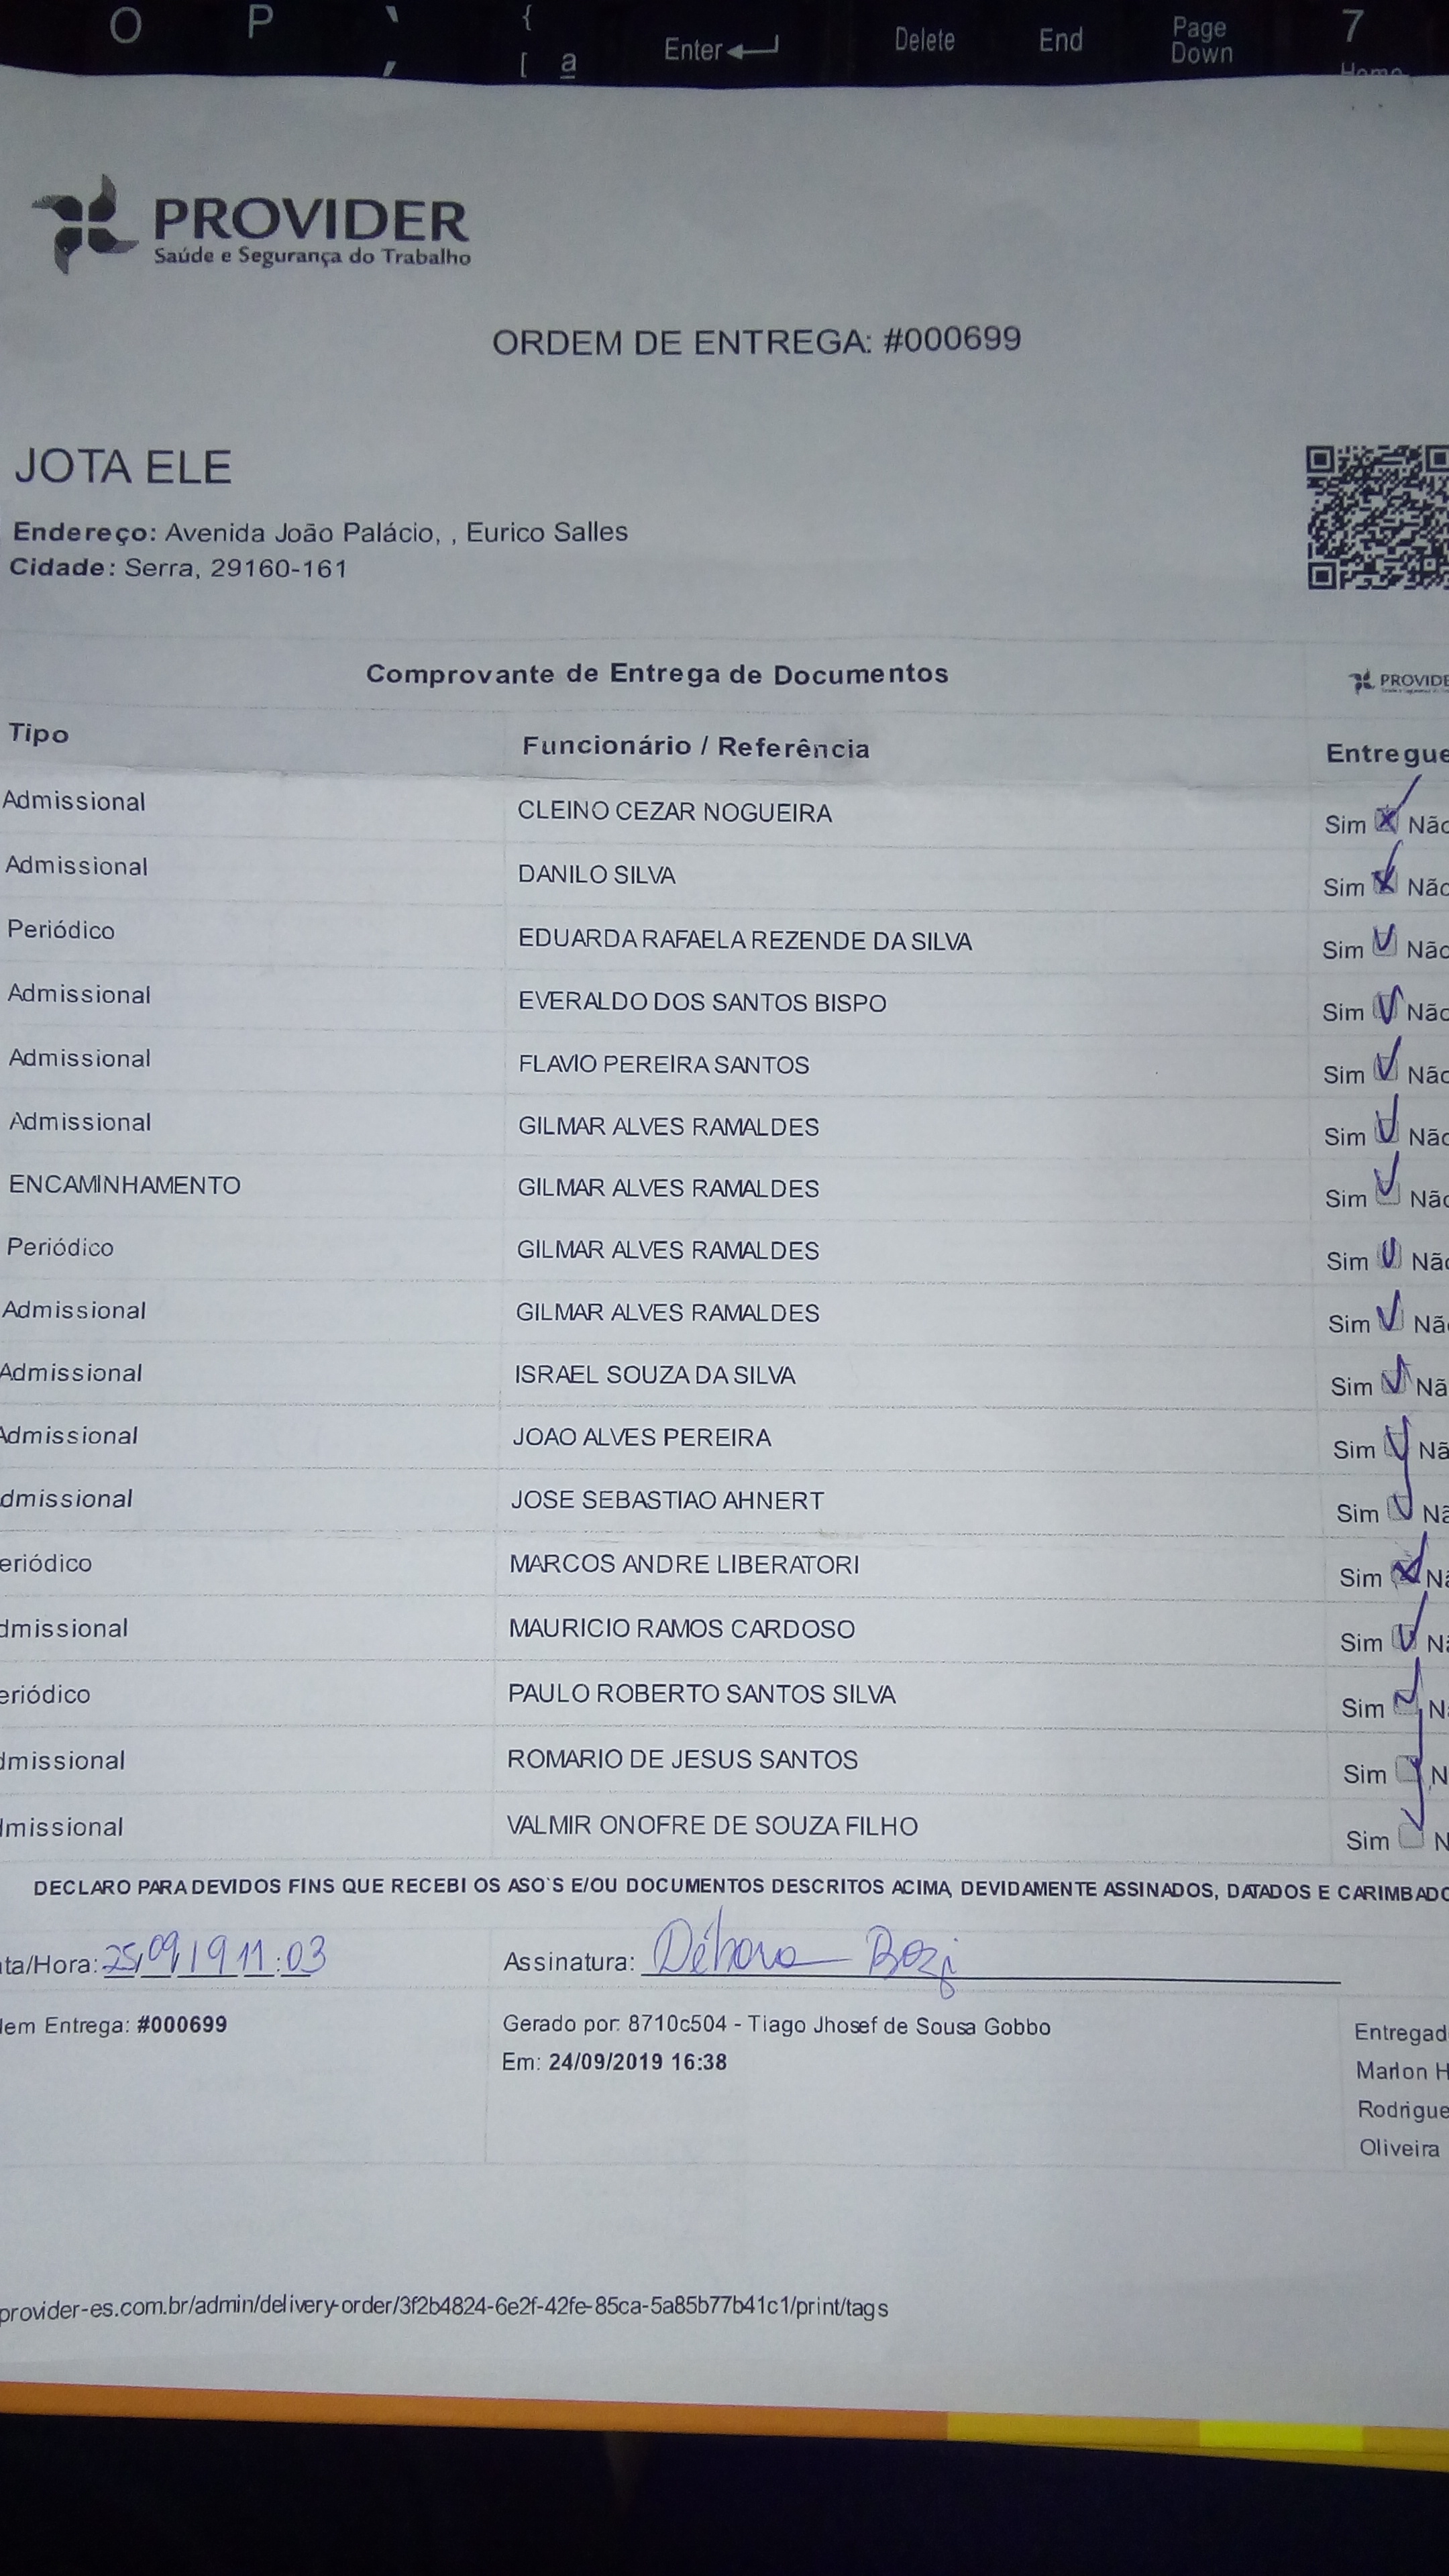 O P ` {
´ [ a Enter Delete End Page Down 7
Home
PROVIDER
Saúde e Segurança do Trabalho
ORDEM DE ENTREGA: #000699
JOTA ELE
Endereço: Avenida João Palácio, , Eurico Salles
Cidade: Serra, 29160-161
Comprovante de Entrega de Documentos PROVIDE
Tipo Funcionário / Referência Entregue
Admissional CLEINO CEZAR NOGUEIRA Sim Não
Admissional DANILO SILVA Sim Não
Periódico EDUARDA RAFAELA REZENDE DA SILVA Sim Não
Admissional EVERALDO DOS SANTOS BISPO Sim Não
Admissional FLAVIO PEREIRA SANTOS Sim Não
Admissional GILMAR ALVES RAMALDES Sim Não
ENCAMINHAMENTO GILMAR ALVES RAMALDES Sim Não
Periódico GILMAR ALVES RAMALDES Sim Não
Admissional GILMAR ALVES RAMALDES Sim Nã
Admissional ISRAEL SOUZA DA SILVA Sim Nã
Admissional JOAO ALVES PEREIRA Sim Nã
dmissional JOSE SEBASTIAO AHNERT Sim Nã
eriódico MARCOS ANDRE LIBERATORI Sim Nã
dmissional MAURICIO RAMOS CARDOSO Sim Nã
eriódico PAULO ROBERTO SANTOS SILVA Sim N
dmissional ROMARIO DE JESUS SANTOS Sim N
dmissional VALMIR ONOFRE DE SOUZA FILHO Sim N
DECLARO PARA DEVIDOS FINS QUE RECEBI OS ASO`S E/OU DOCUMENTOS DESCRITOS ACIMA, DEVIDAMENTE ASSINADOS, DATADOS E CARIMBADO
ta/Hora: 25/09/19 11:03 Assinatura: Débora Bozi
dem Entrega: #000699 Gerado por: 8710c504 - Tiago Jhosef de Sousa Gobbo Entregad
Em: 24/09/2019 16:38 Marlon H
Rodrigue
Oliveira
provider-es.com.br/admin/delivery-order/3f2b4824-6e2f-42fe-85ca-5a85b77b41c1/print/tags